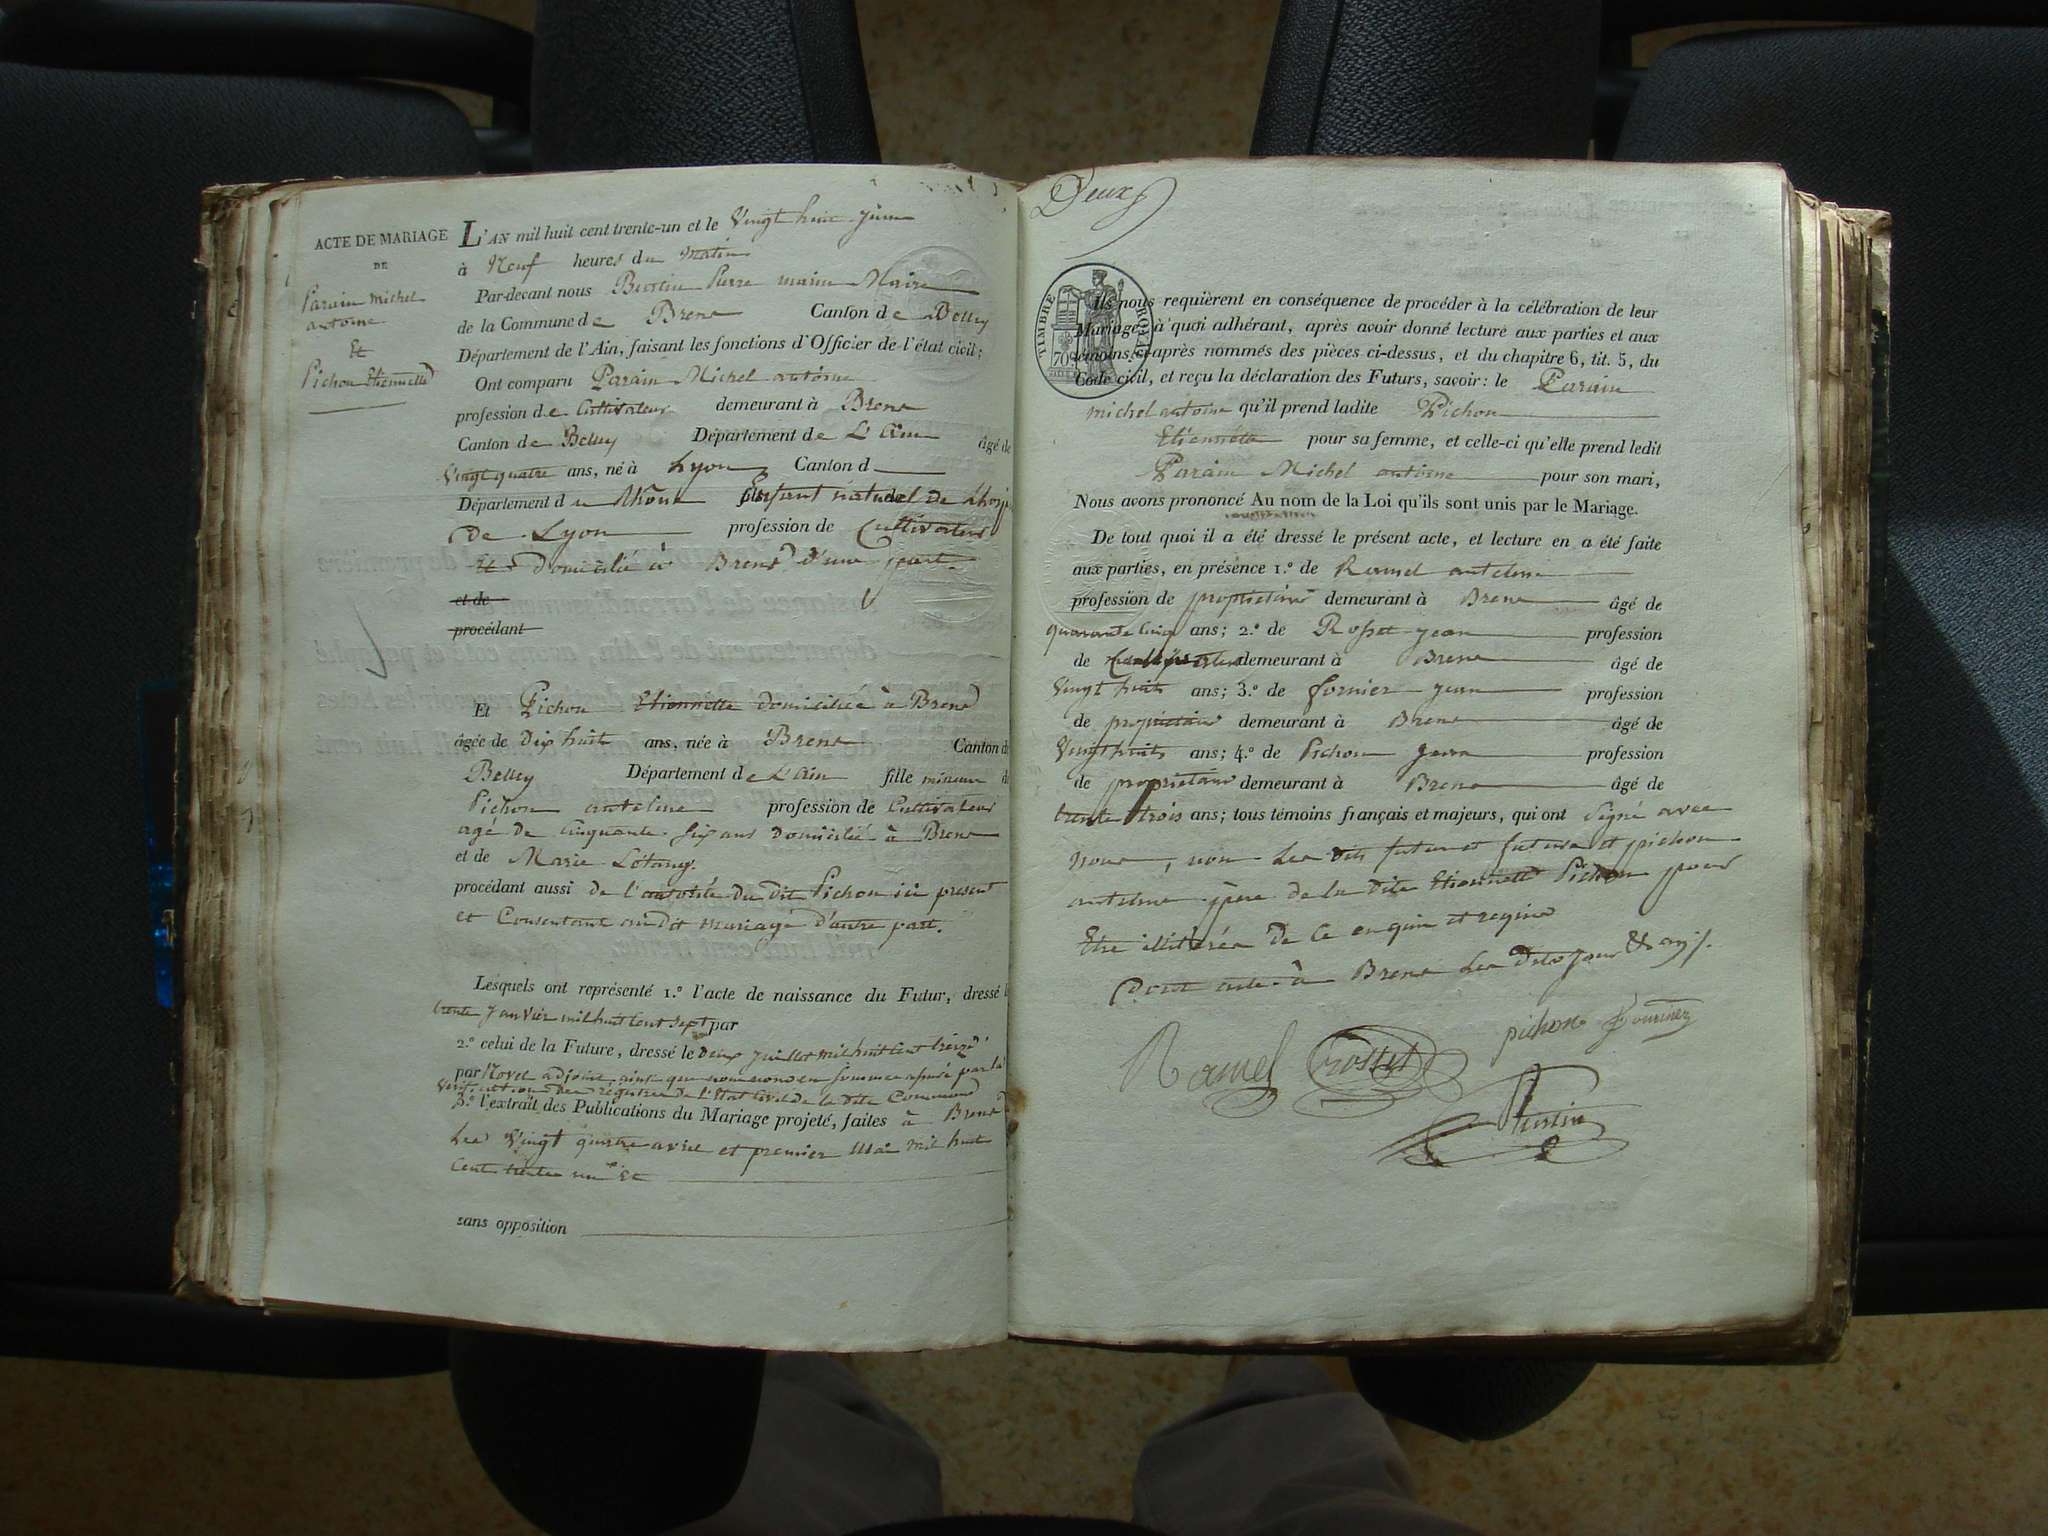 ACTE DE MARIAGE
DE
Parain michel
antoine
Et
Pichon Etiennette
L'AN mil huit cent trente-un et le Vingt huit juin
à Neuf heures du Matin
Par-devant nous Bustin Pierre marin Maire
de la Commune de Brens Canton de Belley
Département de l'Ain, faisant les fonctions d'Officier de l'état civil;
Ont comparu Parain Michel antoine
profession de Cultivateur demeurant à Brens
Canton de Belley Département de L'Ain âgé de
Vingt quatre ans, né à Lyon Canton d
Département du Rhône Enfant naturel de Lhospi
de Lyon profession de Cultivateur
Et domicilié à Brens d'une part.
et de
procédant
Et Pichon Etiennette domiciliée à Brens
âgée de Dix huit ans, née à Brens Canton de
Belley Département de L'Ain fille mineure de
Pichon antelme profession de Cultivateur
agé de Cinquante-six ans Domicilié à Brens
et de Marie Létang.
procédant aussi de l'autorité du dit Pichon ici present
et Consentant au dit mariage d'autre part.
Lesquels ont représenté 1.º l'acte de naissance du Futur, dressé le
trente Janvier mil huit Cent Sept par
2.º celui de la Future, dressé le deux Juillet mil huit Cent treize
par Novel adjoint, ainsi que nous nous en sommes assuré par la
Vérification des régistres de l'Etat Civil de la dite Commune
3.º l'extrait des Publications du Mariage projeté, faites à Brens
Les Vingt quatre avril et premier Mai mil huit
Cent trente un Et
sans opposition
Deux
TIMBRE ROYAL
70
Ils nous requièrent en conséquence de procéder à la célébration de leur
Mariage, à quoi adhérant, après avoir donné lecture aux parties et aux
témoins ci-après nommés des pièces ci-dessus, et du chapitre 6, tit. 5, du
Code civil, et reçu la déclaration des Futurs, savoir: le Parain
michel antoine qu'il prend ladite Pichon
Etiennette pour sa femme, et celle-ci qu'elle prend ledit
Parain Michel antoine pour son mari,
Nous avons prononcé Au nom de la Loi qu'ils sont unis par le Mariage.
De tout quoi il a été dressé le présent acte, et lecture en a été faite
aux parties, en présence 1.º de Ramel antelme
profession de propriétaire demeurant à Brens âgé de
quarante Cinq ans; 2.º de Rosset jean profession
de demeurant à Brens âgé de
Vingt huit ans; 3.º de fornier jean profession
de propriétaire demeurant à Brens âgé de
Vingt huit ans; 4.º de Pichon profession
de propriétaire demeurant à Brens âgé de
trente trois ans; tous témoins français et majeurs, qui ont Signé avec
nous, non Les dits futur et future et pichon
antelme père de la dite Etiennette Pichon pour
Etre illitérés de Ce enquis et requis
Dont acte à Brens Les dits jour &
pichon Fournier
Ramel Rosset
Bustin